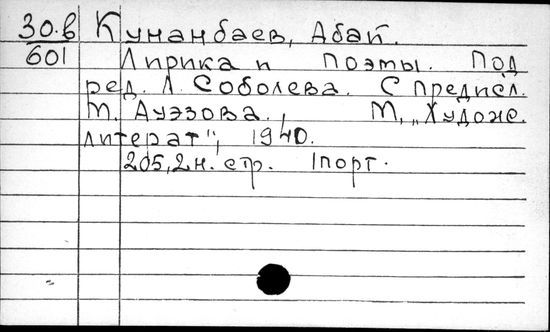 30.в Кунанбаев, Абай.
601 Лирика и поэмы. Под
ред. Л. Соболева. С предисл.
М. Ауэзова., М, „Художе.
литерат", 1940.
205,2н. стр. 1порт.